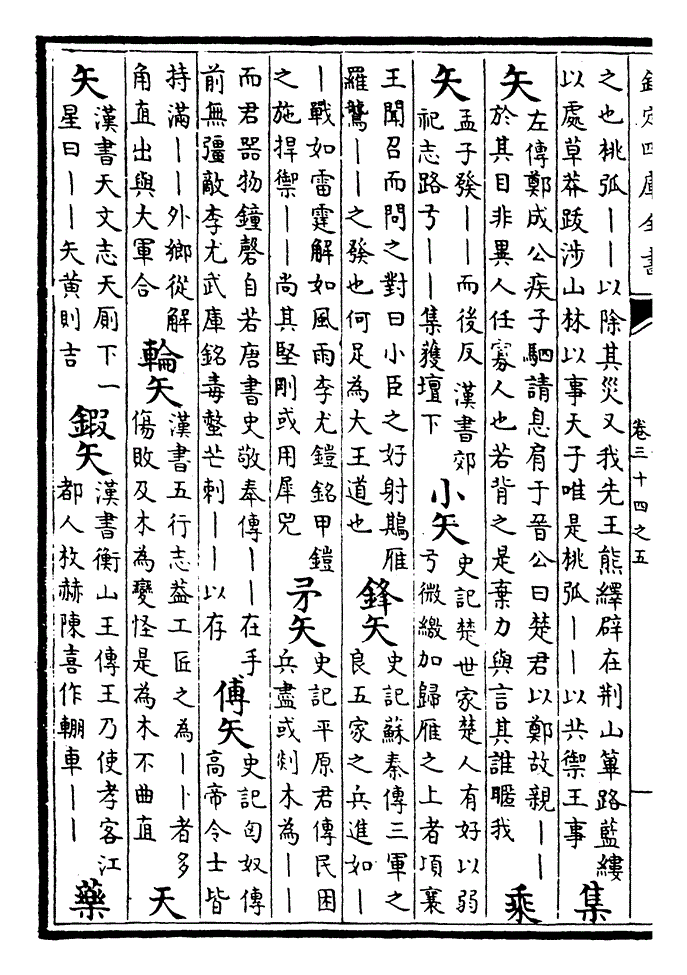 欽定四庫全書
卷三十四之五
之也桃弧丨丨以除其災又我先王熊繹辟在荆山篳路藍縷
以處草莽跋涉山林以事天子唯是桃弧丨丨以共禦王事
集
矢
左傳鄭成公疾子駟請息肩于晉公曰楚君以鄭故親丨丨
於其目非異人任寡人也若背之是棄力與言其誰暱我
乘
矢
孟子發丨丨而後反 漢書郊
祀志路弓丨丨集獲壇下
小矢
史記楚世家楚人有好以弱
弓微繳加歸雁之上者頃襄
王聞召而問之對曰小臣之好射鶀雁
羅鸗丨丨之發也何足為大王道也
鋒矢
史記蘇秦傳三軍之
良五家之兵進如丨
丨戰如雷霆解如風雨李尤鎧銘甲鎧
之施捍禦丨丨尚其堅剛或用犀兕
矛矢
史記平原君傳民困
兵盡或剡木為丨丨
而君器物鐘磬自若唐書史敬奉傳丨丨在手
前無彊敵李尤武庫銘毒螫芒刺丨丨以存
傅矢
史記匈奴傳
高帝令士皆
持滿丨丨外鄉從解
角直出與大軍合
輪矢
漢書五行志葢工匠之為丨丨者多
傷敗及木為變怪是為木不曲直
天
矢
漢書天文志天厠下一
星曰丨丨矢黃則吉
鍜矢
漢書衡山王傳王乃使孝客江
都人枚赫陳喜作輣車丨丨
藥